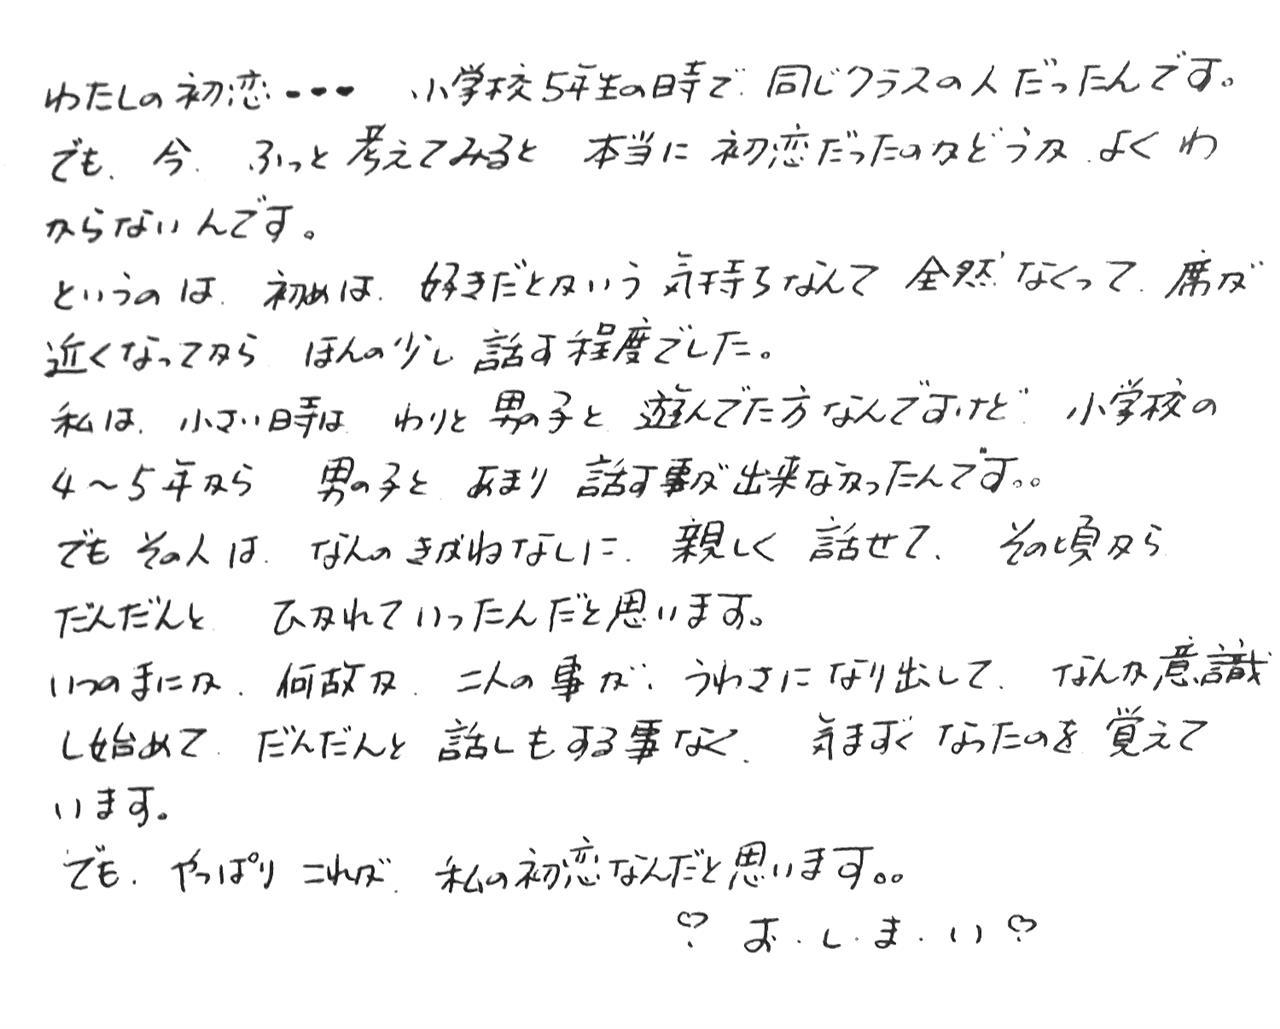 わたしの初恋・・・ 小学校5年生の時で 同じクラスの人だったんです。
でも、今、ふっと考えてみると 本当に初恋だったのかどうか、よくわ
からないんです。
というのは、初めは、好きだとかいう気持ちなんて全然なくって、席が
近くなってから ほんの少し話す程度でした。
私は、小さい時は わりと男の子と遊んでた方なんですけど 小学校の
4〜5年から 男の子と あまり話す事が出来なかったんです。。
でもその人は、なんのきがねなしに、親しく話せて、その頃から
だんだんと ひかれていったんだと思います。
いつのまにか、何故か、二人の事が、うわさになり出して、なんか意識
し始めて、だんだんと話しもする事なく、気まずくなったのを覚えて
います。
でも、やっぱりこれが、私の初恋なんだと思います。。
♡ お・し・ま・い ♡